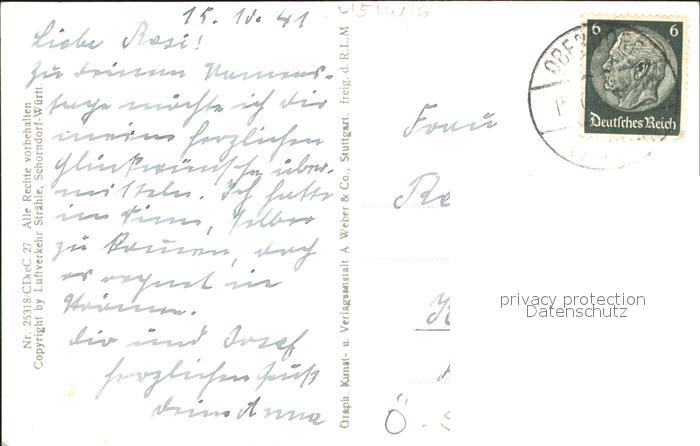 15. IV. 41
Liebe Rosi!
Zu deinem Namens-
tage möchte ich dir
meine herzlichen
Glückwünsche über-
mitteln. Ich hatte
im Sinne, selber
zu kommen, doch
es regnet in
Strömen.
Dir und Josef
herzlichen Gruß
deine Anna
Nr. 25318/CD+eC 27. Alle Rechte vorbehalten
Copyright by Luftverkehr Strähle, Schorndorf-Württ.
Graph. Kunst- u. Verlagsanstalt A. Weber & Co., Stuttgart. freig. d. R.L.M
6 6
Deutsches Reich
Frau
privacy protection
Datenschutz
Ö